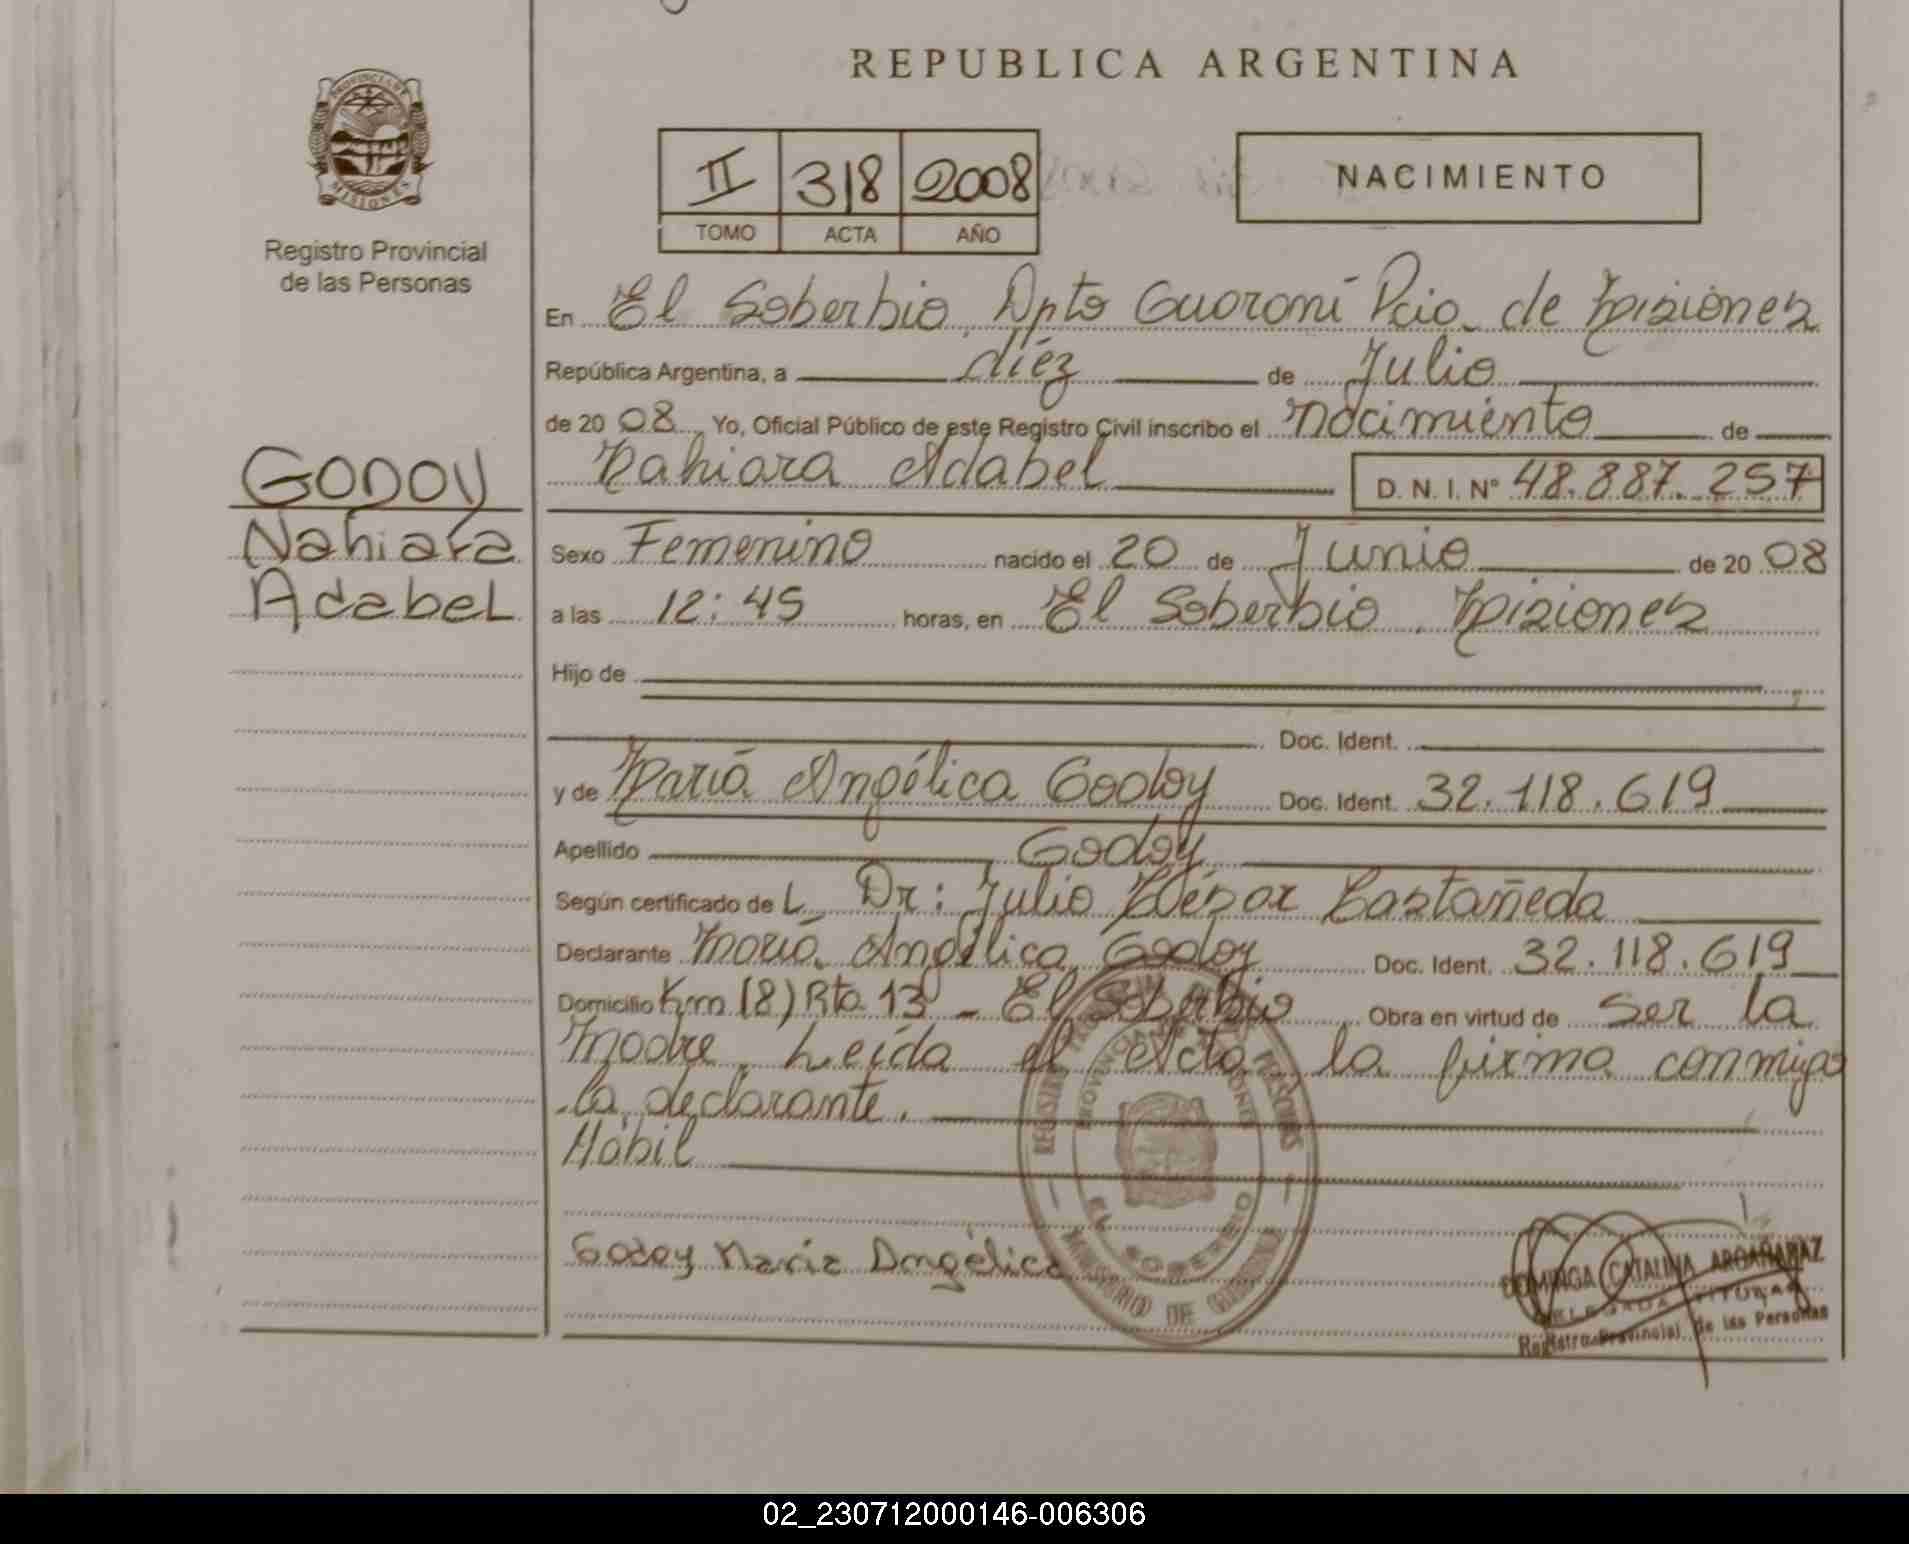 REPUBLICA ARGENTINA
PROVINCIA DE MISIONES
Registro Provincial
de las Personas
II 318 2008
TOMO ACTA AÑO
NACIMIENTO
En El Soberbio, Dpto Guaraní Pcia. de Misiones
República Argentina, a diéz de Julio
de 2008 Yo, Oficial Público de este Registro Civil inscribo el Nacimiento de
Nahiara Adabel D. N. I. Nº 48.887.257
GODOY
Nahiara
AdabeL
Sexo Femenino nacido el 20 de Junio de 2008
a las 12:45 horas, en El Soberbio, Misiones
Hijo de
Doc. Ident.
y de María Angélica Godoy Doc. Ident. 32.118.619
Apellido Godoy
Según certificado de L Dr: Julio César Castañeda
Declarante María Angélica Godoy Doc. Ident. 32.118.619
Domicilio Km (8) Rta 13 - El Soberbio Obra en virtud de ser la
Madre. Leída el Acta, la firma conmigo
la declarante.
Hábil
Godoy Maria Angélica
REGISTRO PROVINCIAL DE LAS PERSONAS
PROVINCIA DE MISIONES
EL SOBERBIO
MINISTERIO DE GOBIERNO
DOMINGA CATALINA ARGAÑARAZ
DELEGADA TITULAR
Registro Provincial de las Personas
02_230712000146-006306